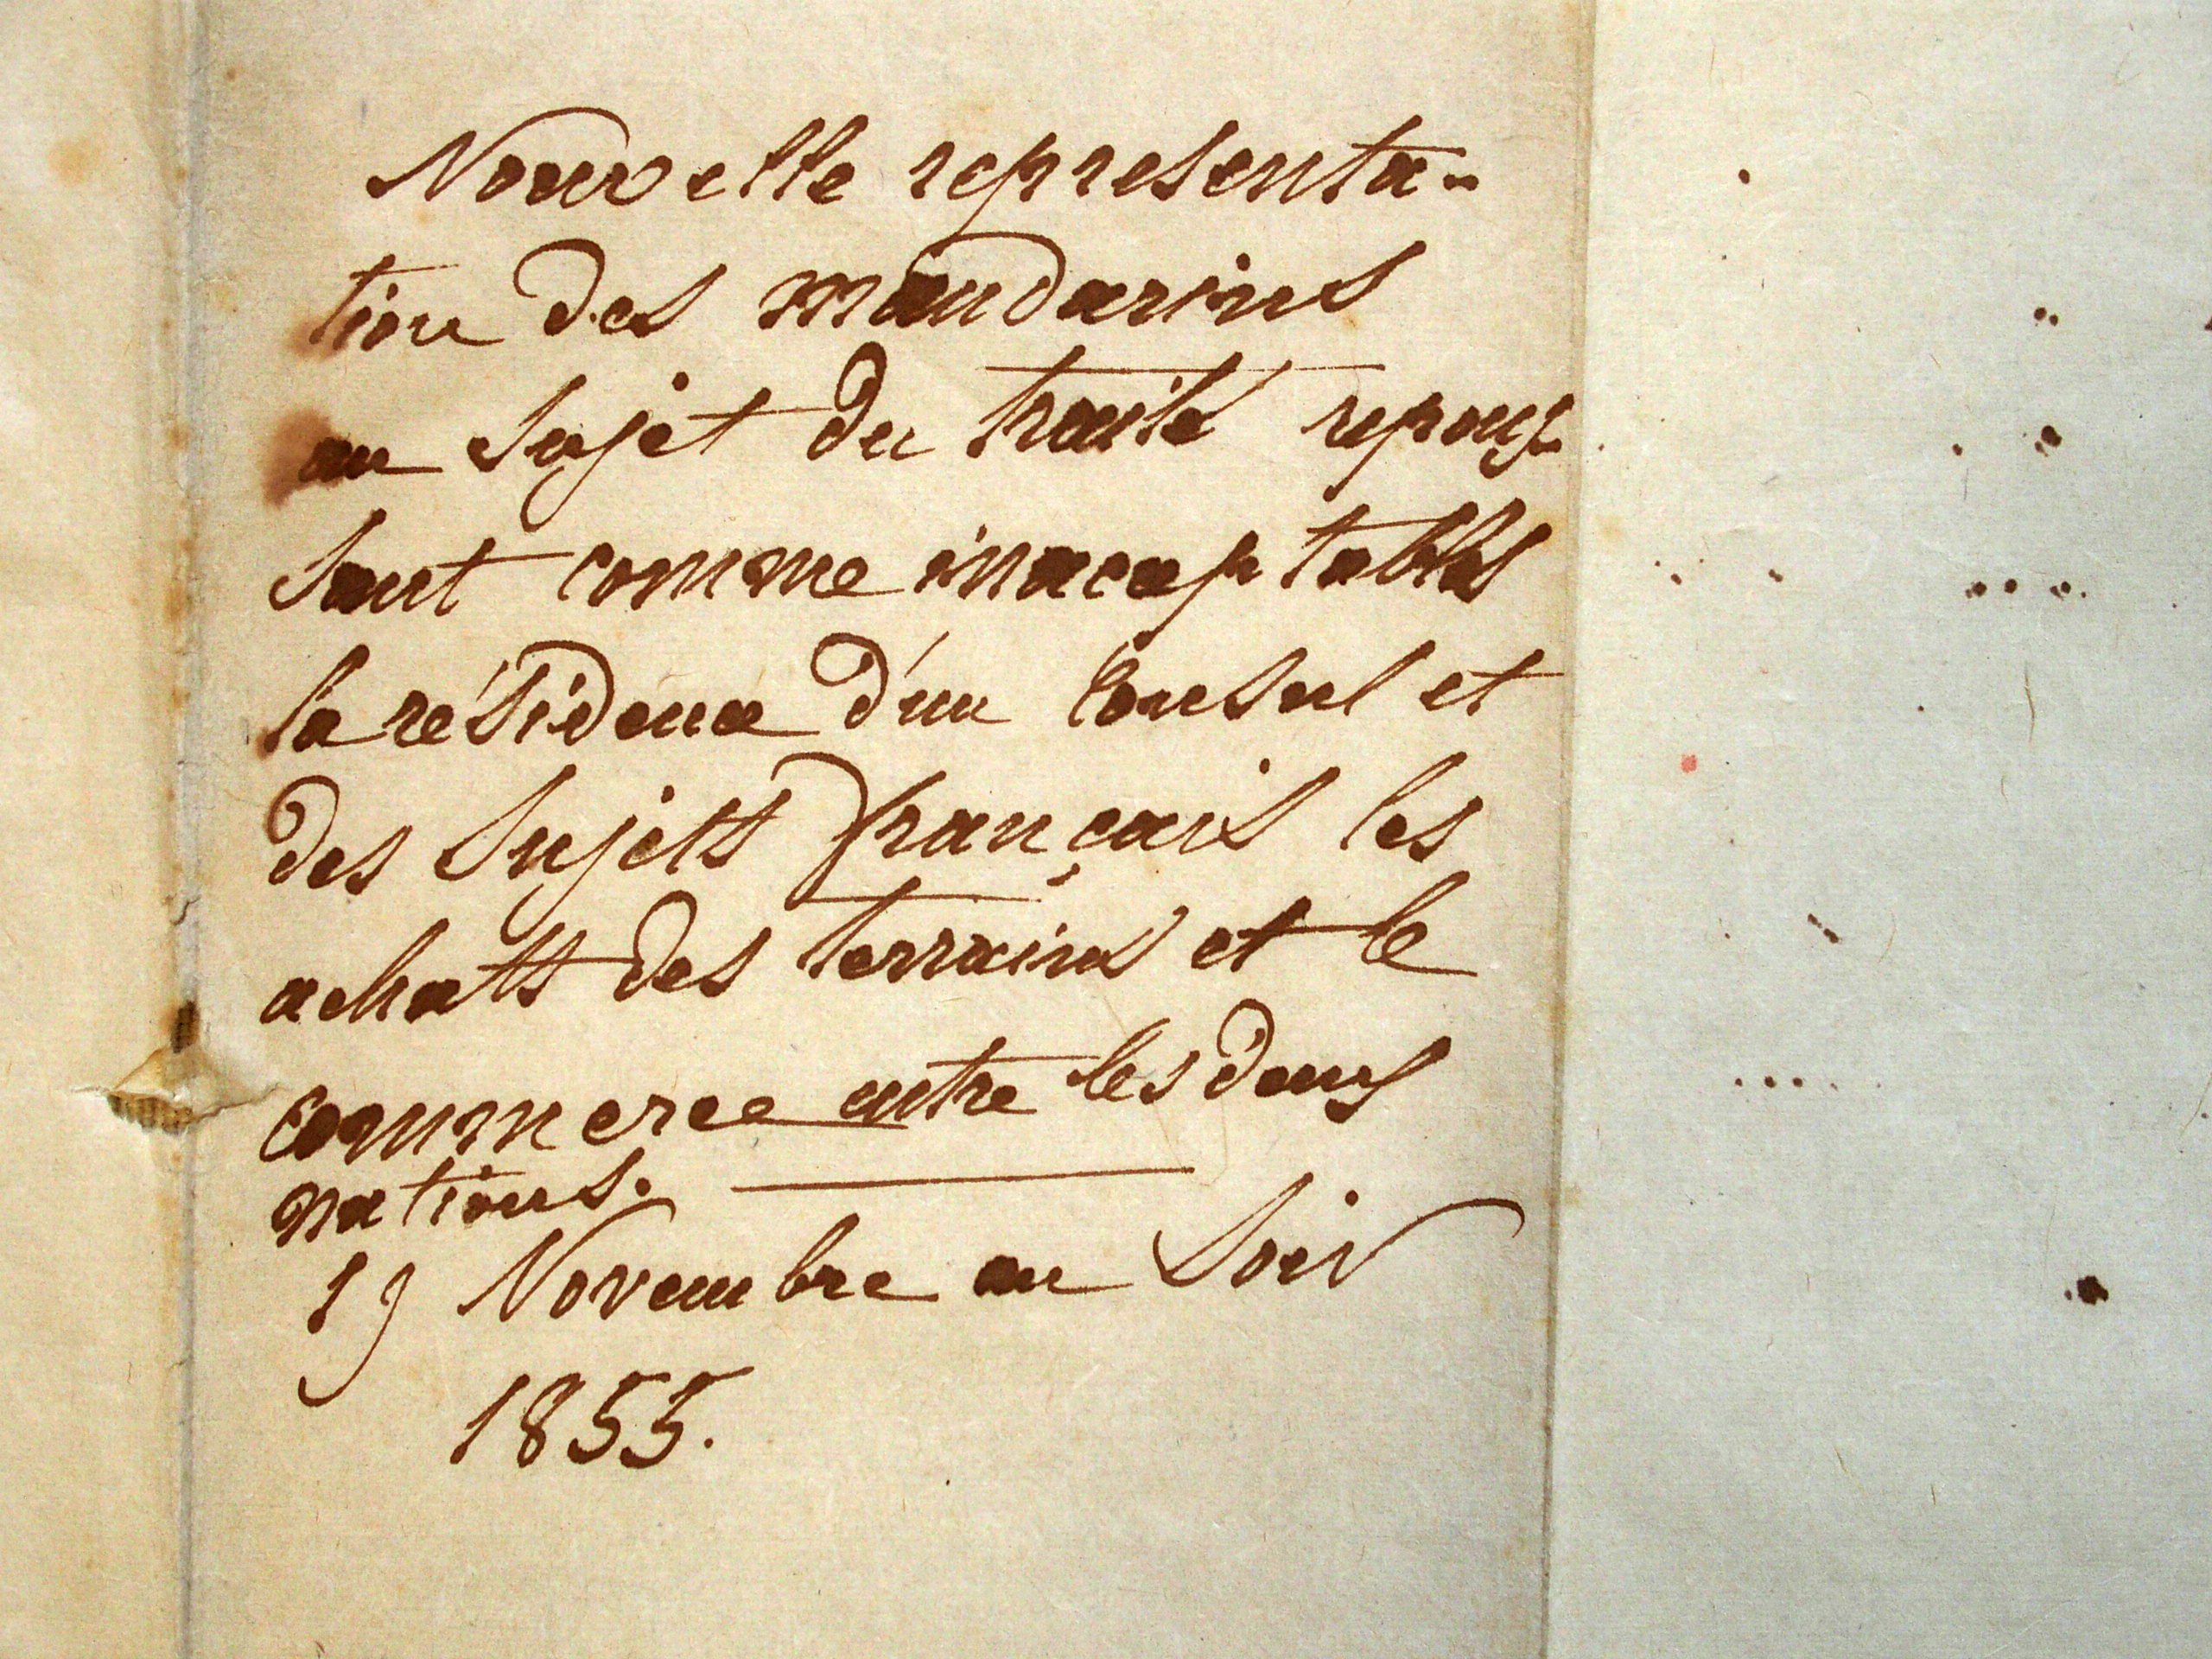 Nouvelle representa-
tion des mandarins
au sujet du traité repous-
sant comme inaceptables
la résidence d'un Consul et
des sujets français les
achats des terrains et le
commerce entre les deux
nations.
19 Novembre au soir
1855.